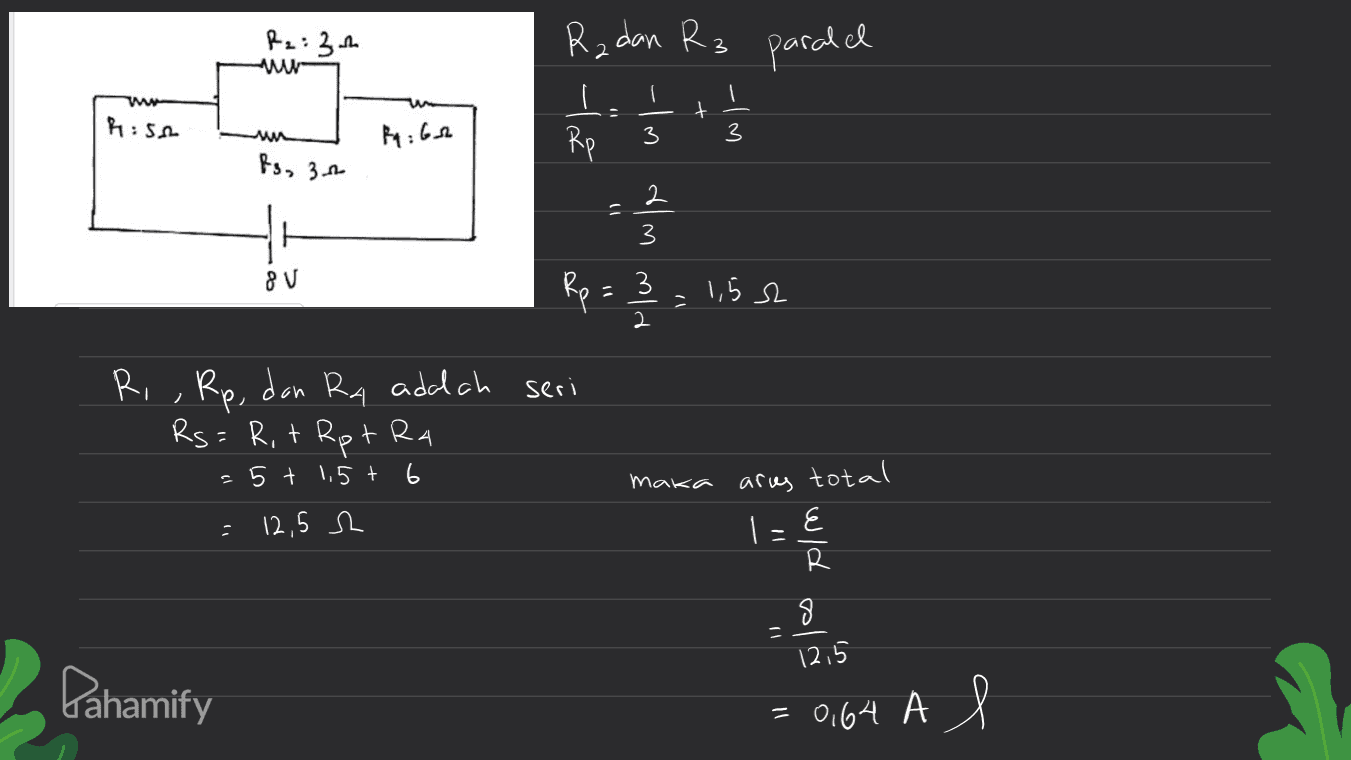 R₂ : 3 Ω
R₁ : 5 Ω
R₄ : 6 Ω
R₃ = 3 Ω
8 V
R₂ dan R₃ paralel
1/Rp = 1/3 + 1/3
= 2/3
Rp = 3/2 = 1,5 Ω
R₁, Rp, dan R₄ adalah seri
Rs = R₁ + Rp + R₄
= 5 + 1,5 + 6
= 12,5 Ω
maka arus total
I = ε/R
= 8/12,5
= 0,64 A
Pahamify